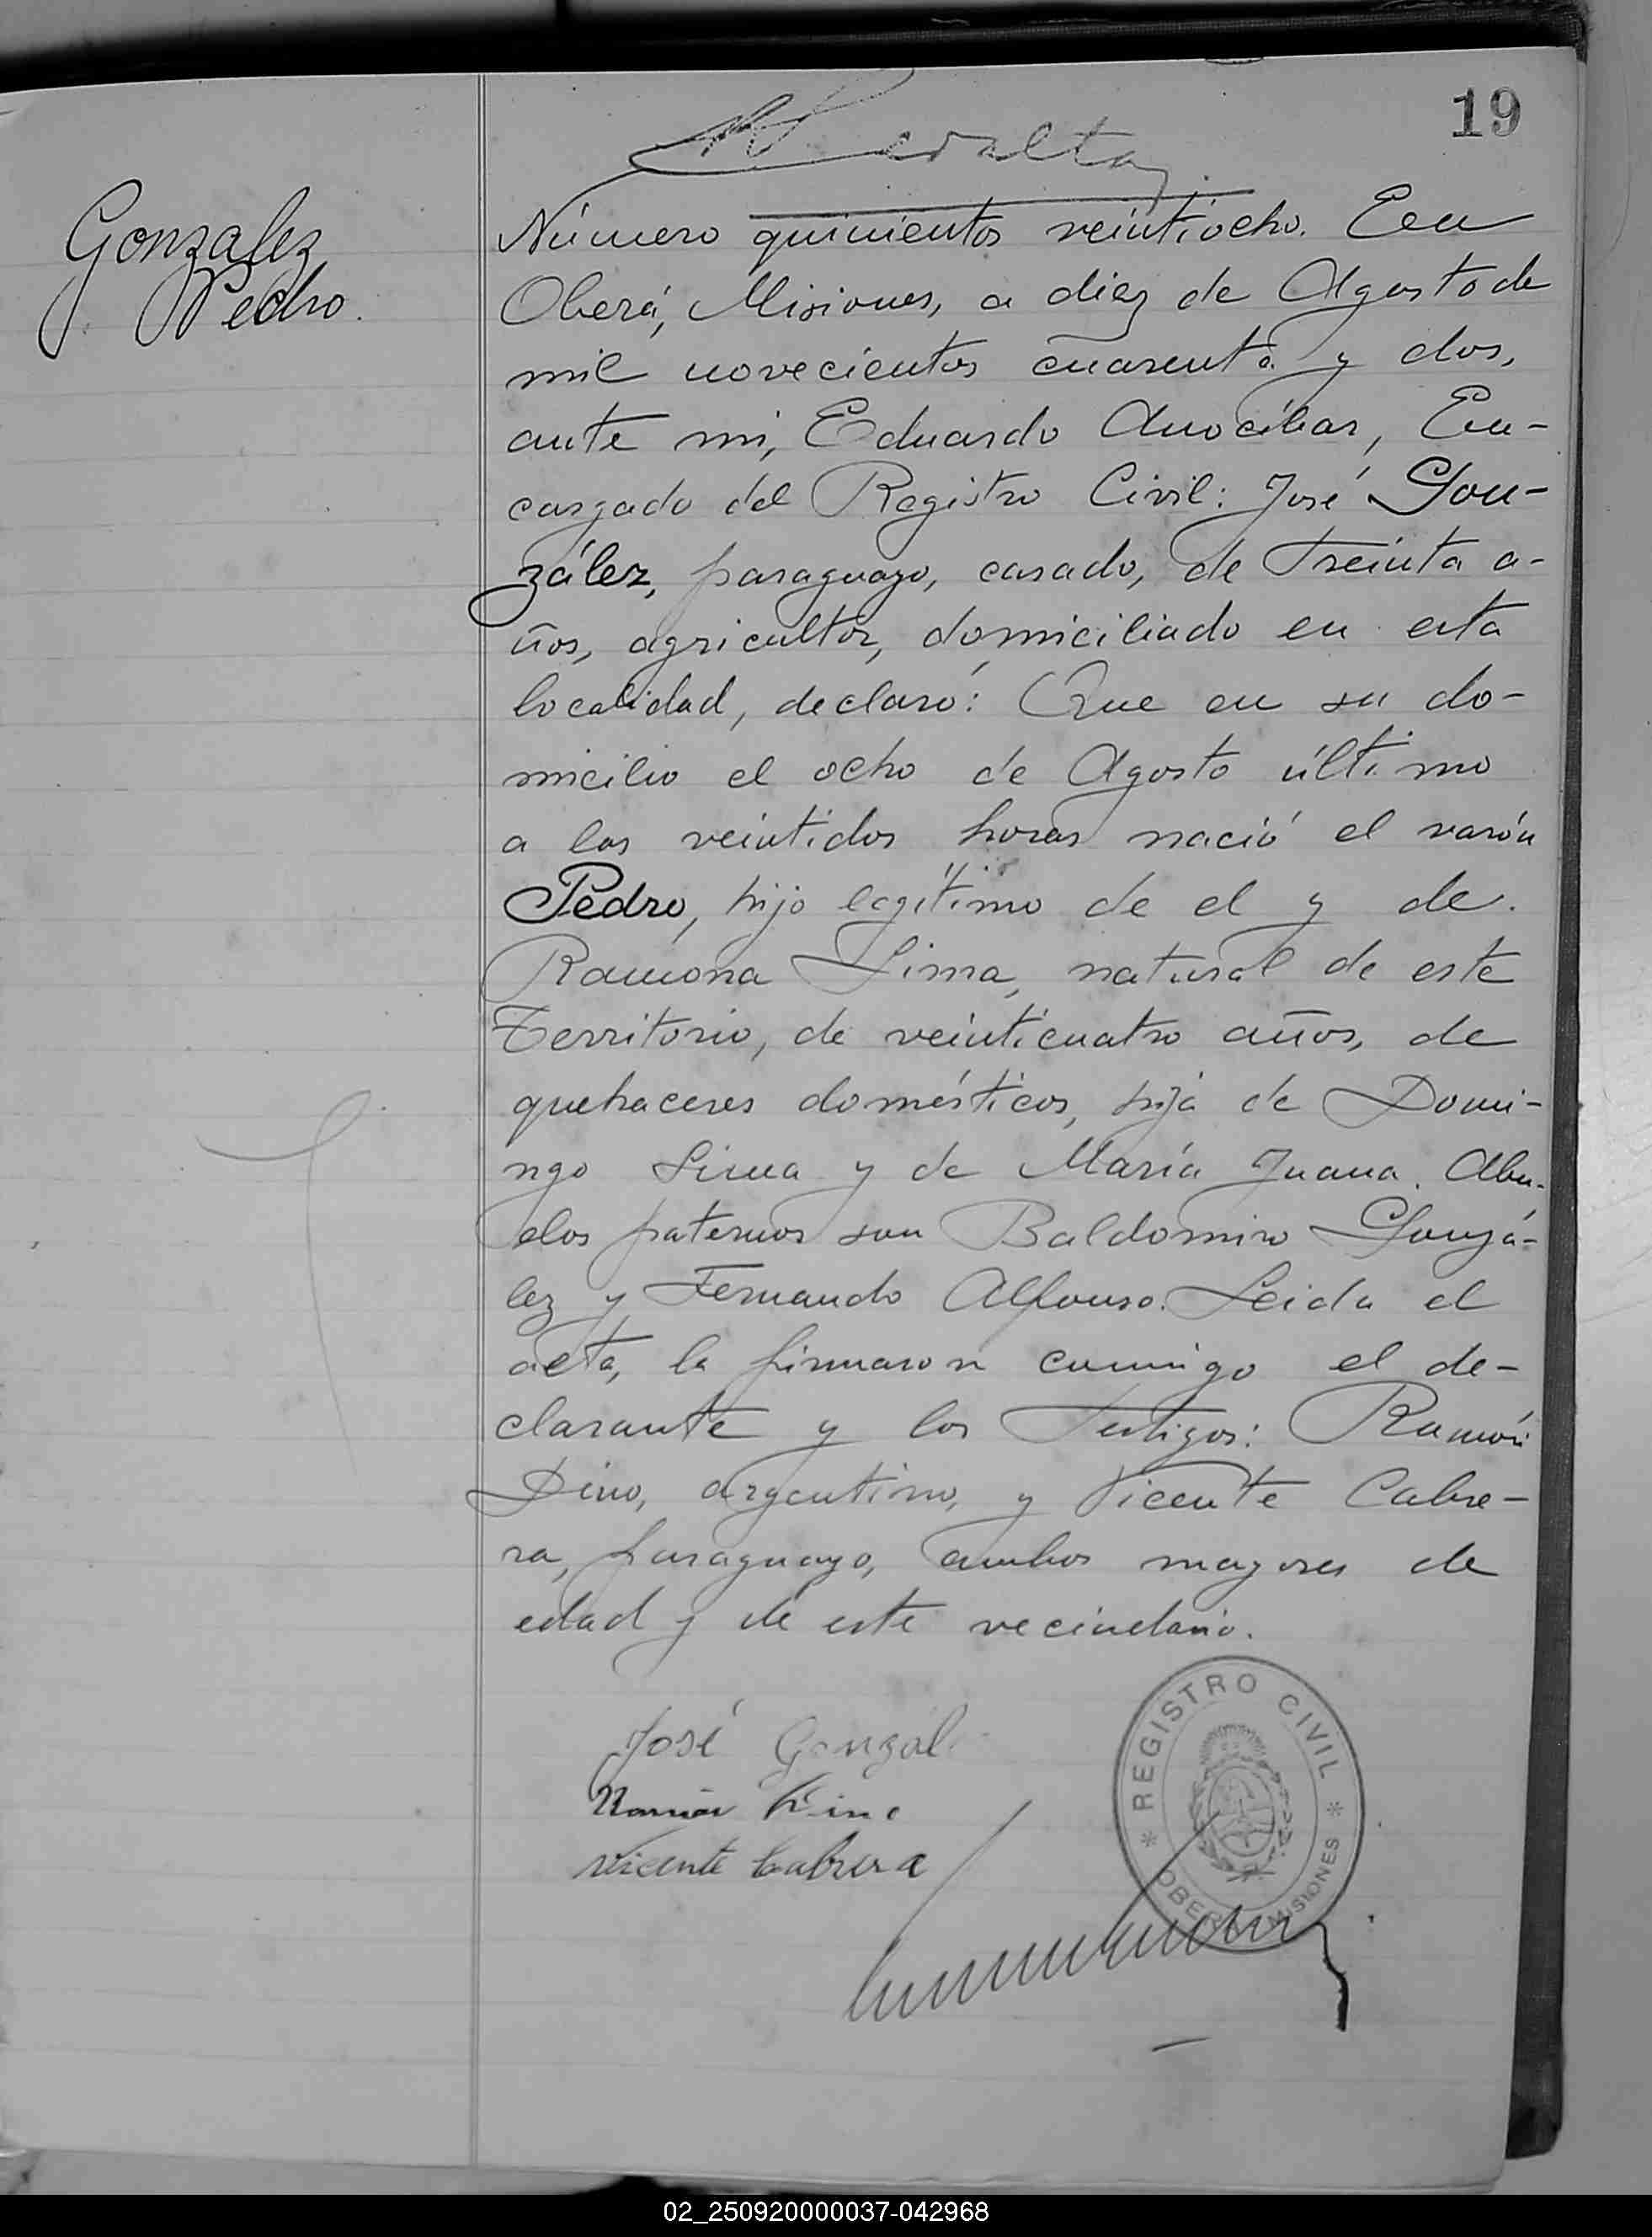 19
Peralta
Gonzalez
Pedro.
Número quinientos veintiocho. En
Oberá, Misiones, a diez de Agosto de
mil novecientos cuarenta y dos,
ante mi, Eduardo Anocíbar, En-
cargado del Registro Civil: José Gon-
zález, paraguayo, casado, de treinta a-
ños, agricultor, domiciliado en esta
localidad, declaró: Que en su do-
micilio el ocho de Agosto último
a las veintidos horas nació el varón
Pedro, hijo legítimo de el y de.
Ramona Lima, natural de este
Territorio, de veinticuatro años, de
quehaceres domésticos, hija de Domi-
ngo Lima y de María Juana. Abu-
elos paternos son Baldomiro Gonzá-
lez y Fernando Alfonso. Leida el
acta, la firmaron conmigo el de-
clarante y los Testigos: Ramón
Dino, argentino, y Vicente Cabre-
ra, paraguayo, ambos mayores de
edad y de este vecindario.
José Gonzal
Ramón
Vicente Cabrera
* REGISTRO CIVIL *
OBERA MISIONES
02_250920000037-042968